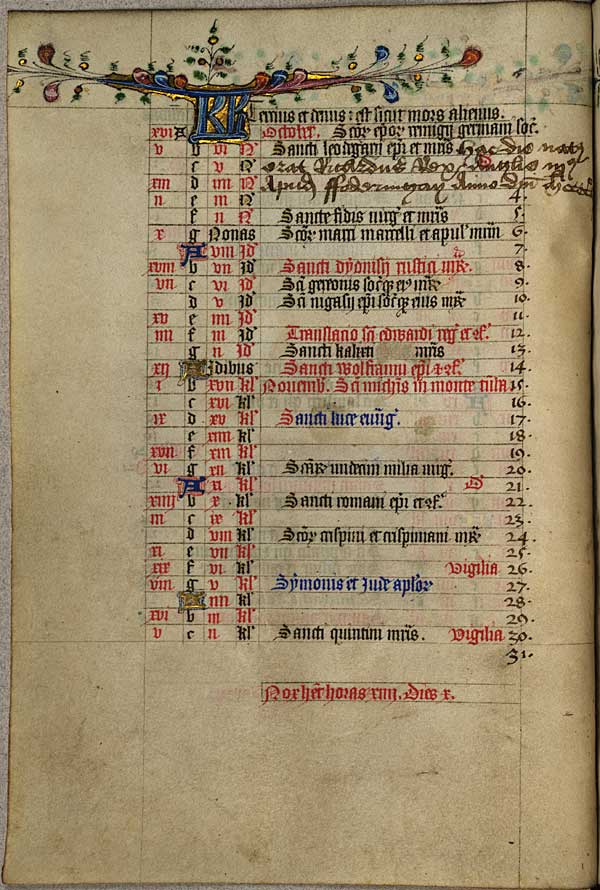 KL Tercius et denus: est sicut mors alienus.
xvi A Octobris. Scõr epõr remigij germani soc̃.
v b vi N Sancti leodegarij epi et mris hac die nat9
c v N erat Ricardus Rex Anglie
xiii d iiii N Apud ffodringay Anno dñi 4.
ii e iii N
f ii N Sancte fidis uirgs et mris 5.
x g Nonas Scõr marci marcelli et apul' mrm 6.
A viii Id 7.
xviii b vii Id Sancti dyonisij rustici mr 8.
vii c vi Id Sci gereonis soc̃q3 mr 9.
d v Id Sci nigasij epi soc̃q3 eius mr 10.
xv e iiii Id 11.
iiii f iii Id Translacio sci edwardi reg et cf. 12.
g ii Id Sancti kalixti mris 13.
xii A Idibus Sancti Wolfranni epi et cf. 14.
i b xvii kl' Nouemb. Sci michis in monte 15.
c xvi kl' 16.
ix d xv kl' Sancti luce euung. 17.
e xiiii kl' 18.
xvii f xiii kl' 19.
vi g xii kl' Scar undecim milia uirg. 20.
A xi kl' D 21.
xiiii b x kl' Sancti romani epi et cf. 22.
iii c ix kl' 23.
d viii kl' Scõr crispini et crispiniani mr 24.
xi e vii kl' 25.
xix f vi kl' Vigilia 26.
viii g v kl' Symonis et Jude aplor 27.
A iiii kl' 28.
xvi b iii kl' 29.
v c ii kl' Sancti quintini mris. Vigilia 30.
31.
Nox het horas xiiii. Dies x.